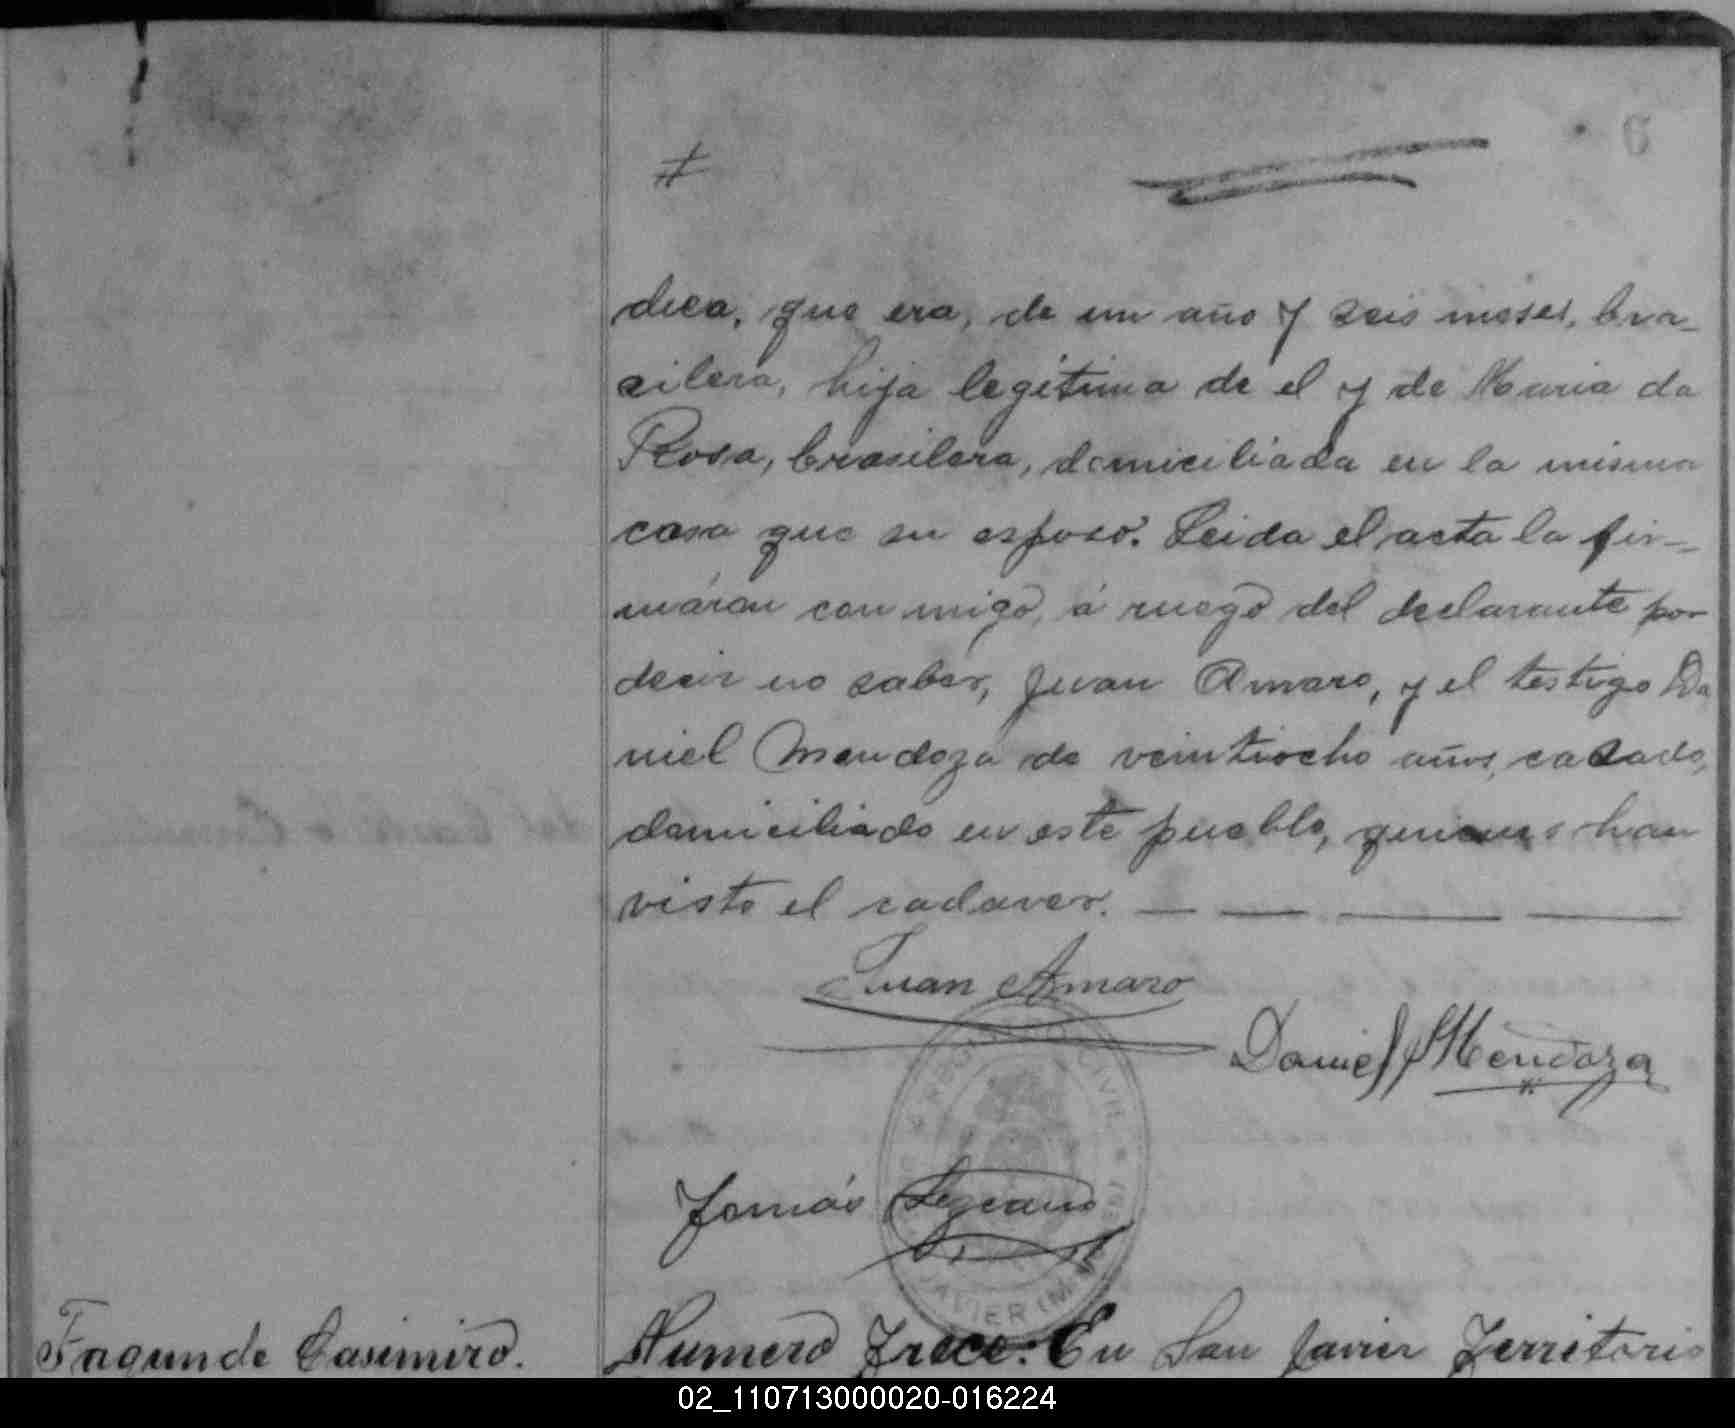 6
#
dica, que era, de un año y seis meses, bra-
silera, hija legítima de el y de Maria da
Rosa, brasilera, domiciliada en la misma
casa que su esposo. Leida el acta la fir-
máran con migo, á ruego del declarante por
decir no saber, Juan Amaro, y el testigo Da
niel Mendoza de veintiocho años, casado,
domiciliado en este pueblo, quienes han
visto el cadaver.
Juan Amaro
Daniel Mendoza
REGISTRO CIVIL
Tomás
JAVIER (M
Fagunde Casimiro.
Numero Trece: En San Javier Territorio
02_110713000020-016224